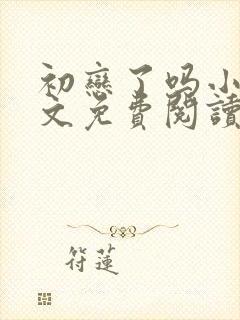 初戀了吗小
文免費閱讀
符蓮